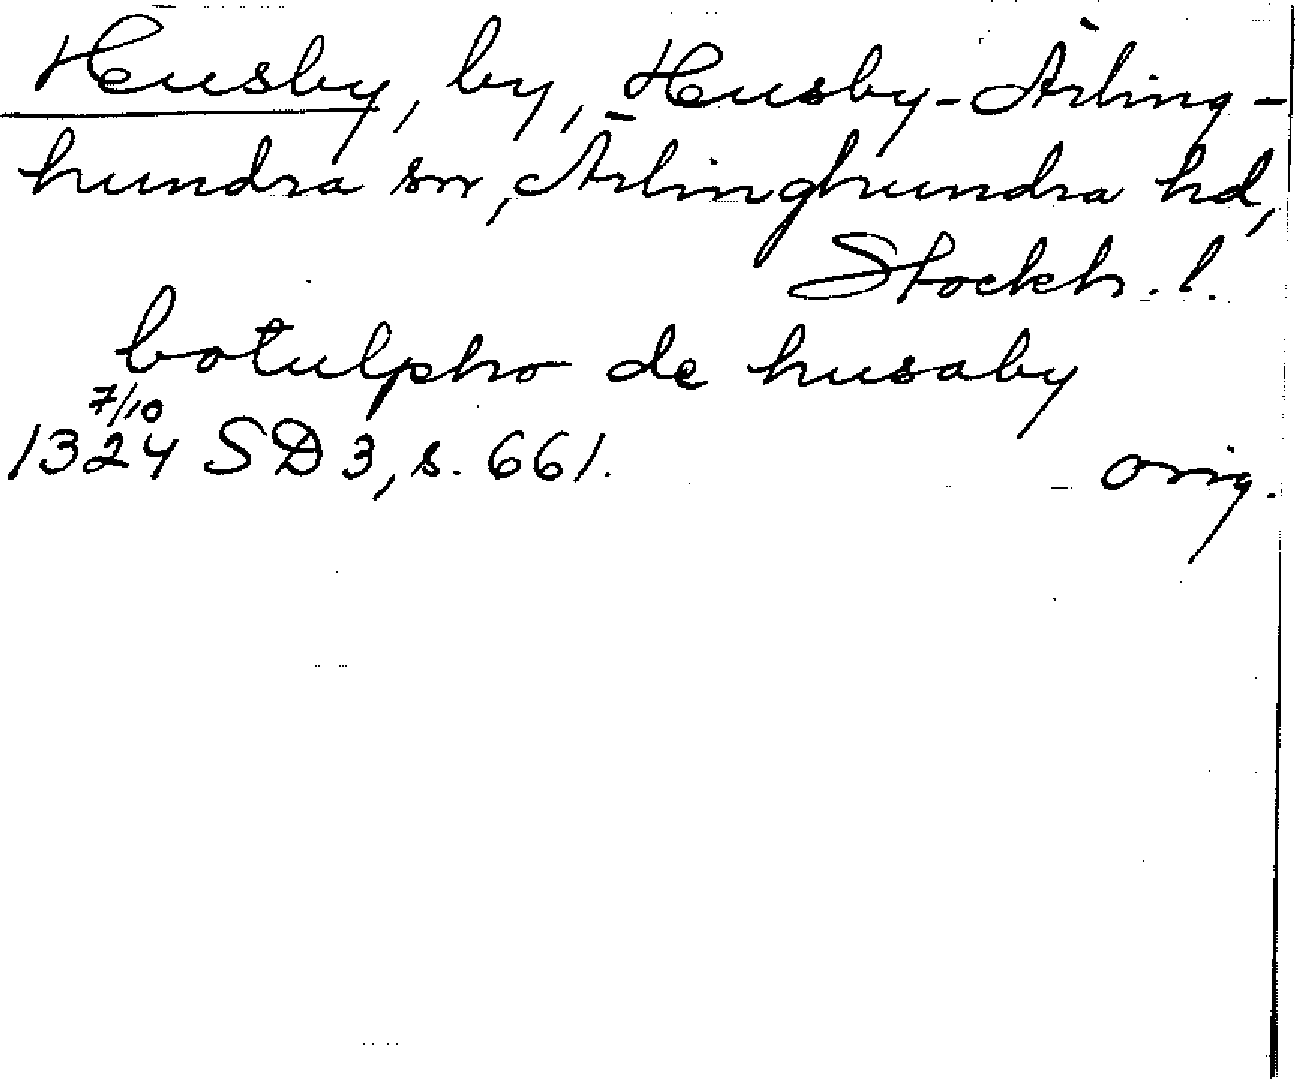 Husby, by, Husby-Ärling-
hundra sn, Ärlinghundra hd,
Stockh. l.
botulpho de husaby
7/10
1324 SD 3, s. 661. orig.